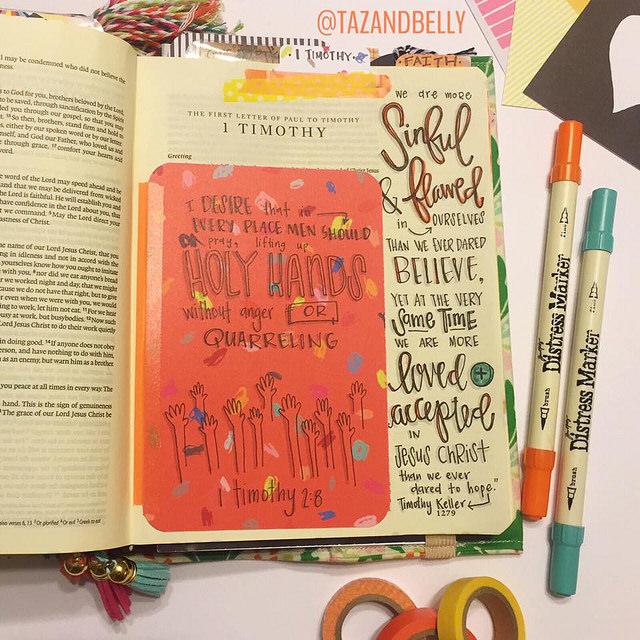 @TAZANDBELLY
1 TIMOTHY
FAITH
l may be condemned who did not believe the
s to God for you, brothers beloved by the Lord,
to be saved, through sanctification by the Spirit
ed you through our gospel, so that you may
t. So then, brothers, stand firm and hold to
s, either by our spoken word or by our letter.
mself, and God our Father, who loved us and
e through grace, comfort your hearts and
word.
e word of the Lord may speed ahead and be
and that we may be delivered from wicked
aithful. He will establish you and
have confidence in the Lord about you, that
t we command. May the Lord direct your
astness of Christ.
he name of our Lord Jesus Christ, that you
g in idleness and not in accord with the
yourselves know how you ought to imitate
with you, nor did we eat anyone's bread
we worked night and day, that we might
cause we do not have that right, but to give
r even when we were with you, we would
ing to work, let him not eat. For we hear
busy at work, but busybodies. Now such
rd Jesus Christ to do their work quietly
in doing good. If anyone does not obey
erson, and have nothing to do with him,
as an enemy, but warn him as a brother.
you peace at all times in every way. The
hand. This is the sign of genuineness
The grace of our Lord Jesus Christ be
THE FIRST LETTER OF PAUL TO TIMOTHY
1 TIMOTHY
Greeting
Christ Jesus
I DESIRE that in
EVERY PLACE MEN SHOULD
pray, lifting up
HOLY HANDS
without anger OR
QUARRELING
1 Timothy 2:8
we are more
Sinful
& flawed
in OURSELVES
THAN WE EVER DARED
BELIEVE,
YET AT THE VERY
Same Time
WE ARE MORE
loved +
accepted
IN
JESUS CHRIST
than we ever
dared to hope."
Timothy Keller
1279
Distress Marker
brush
Distress Marker
brush